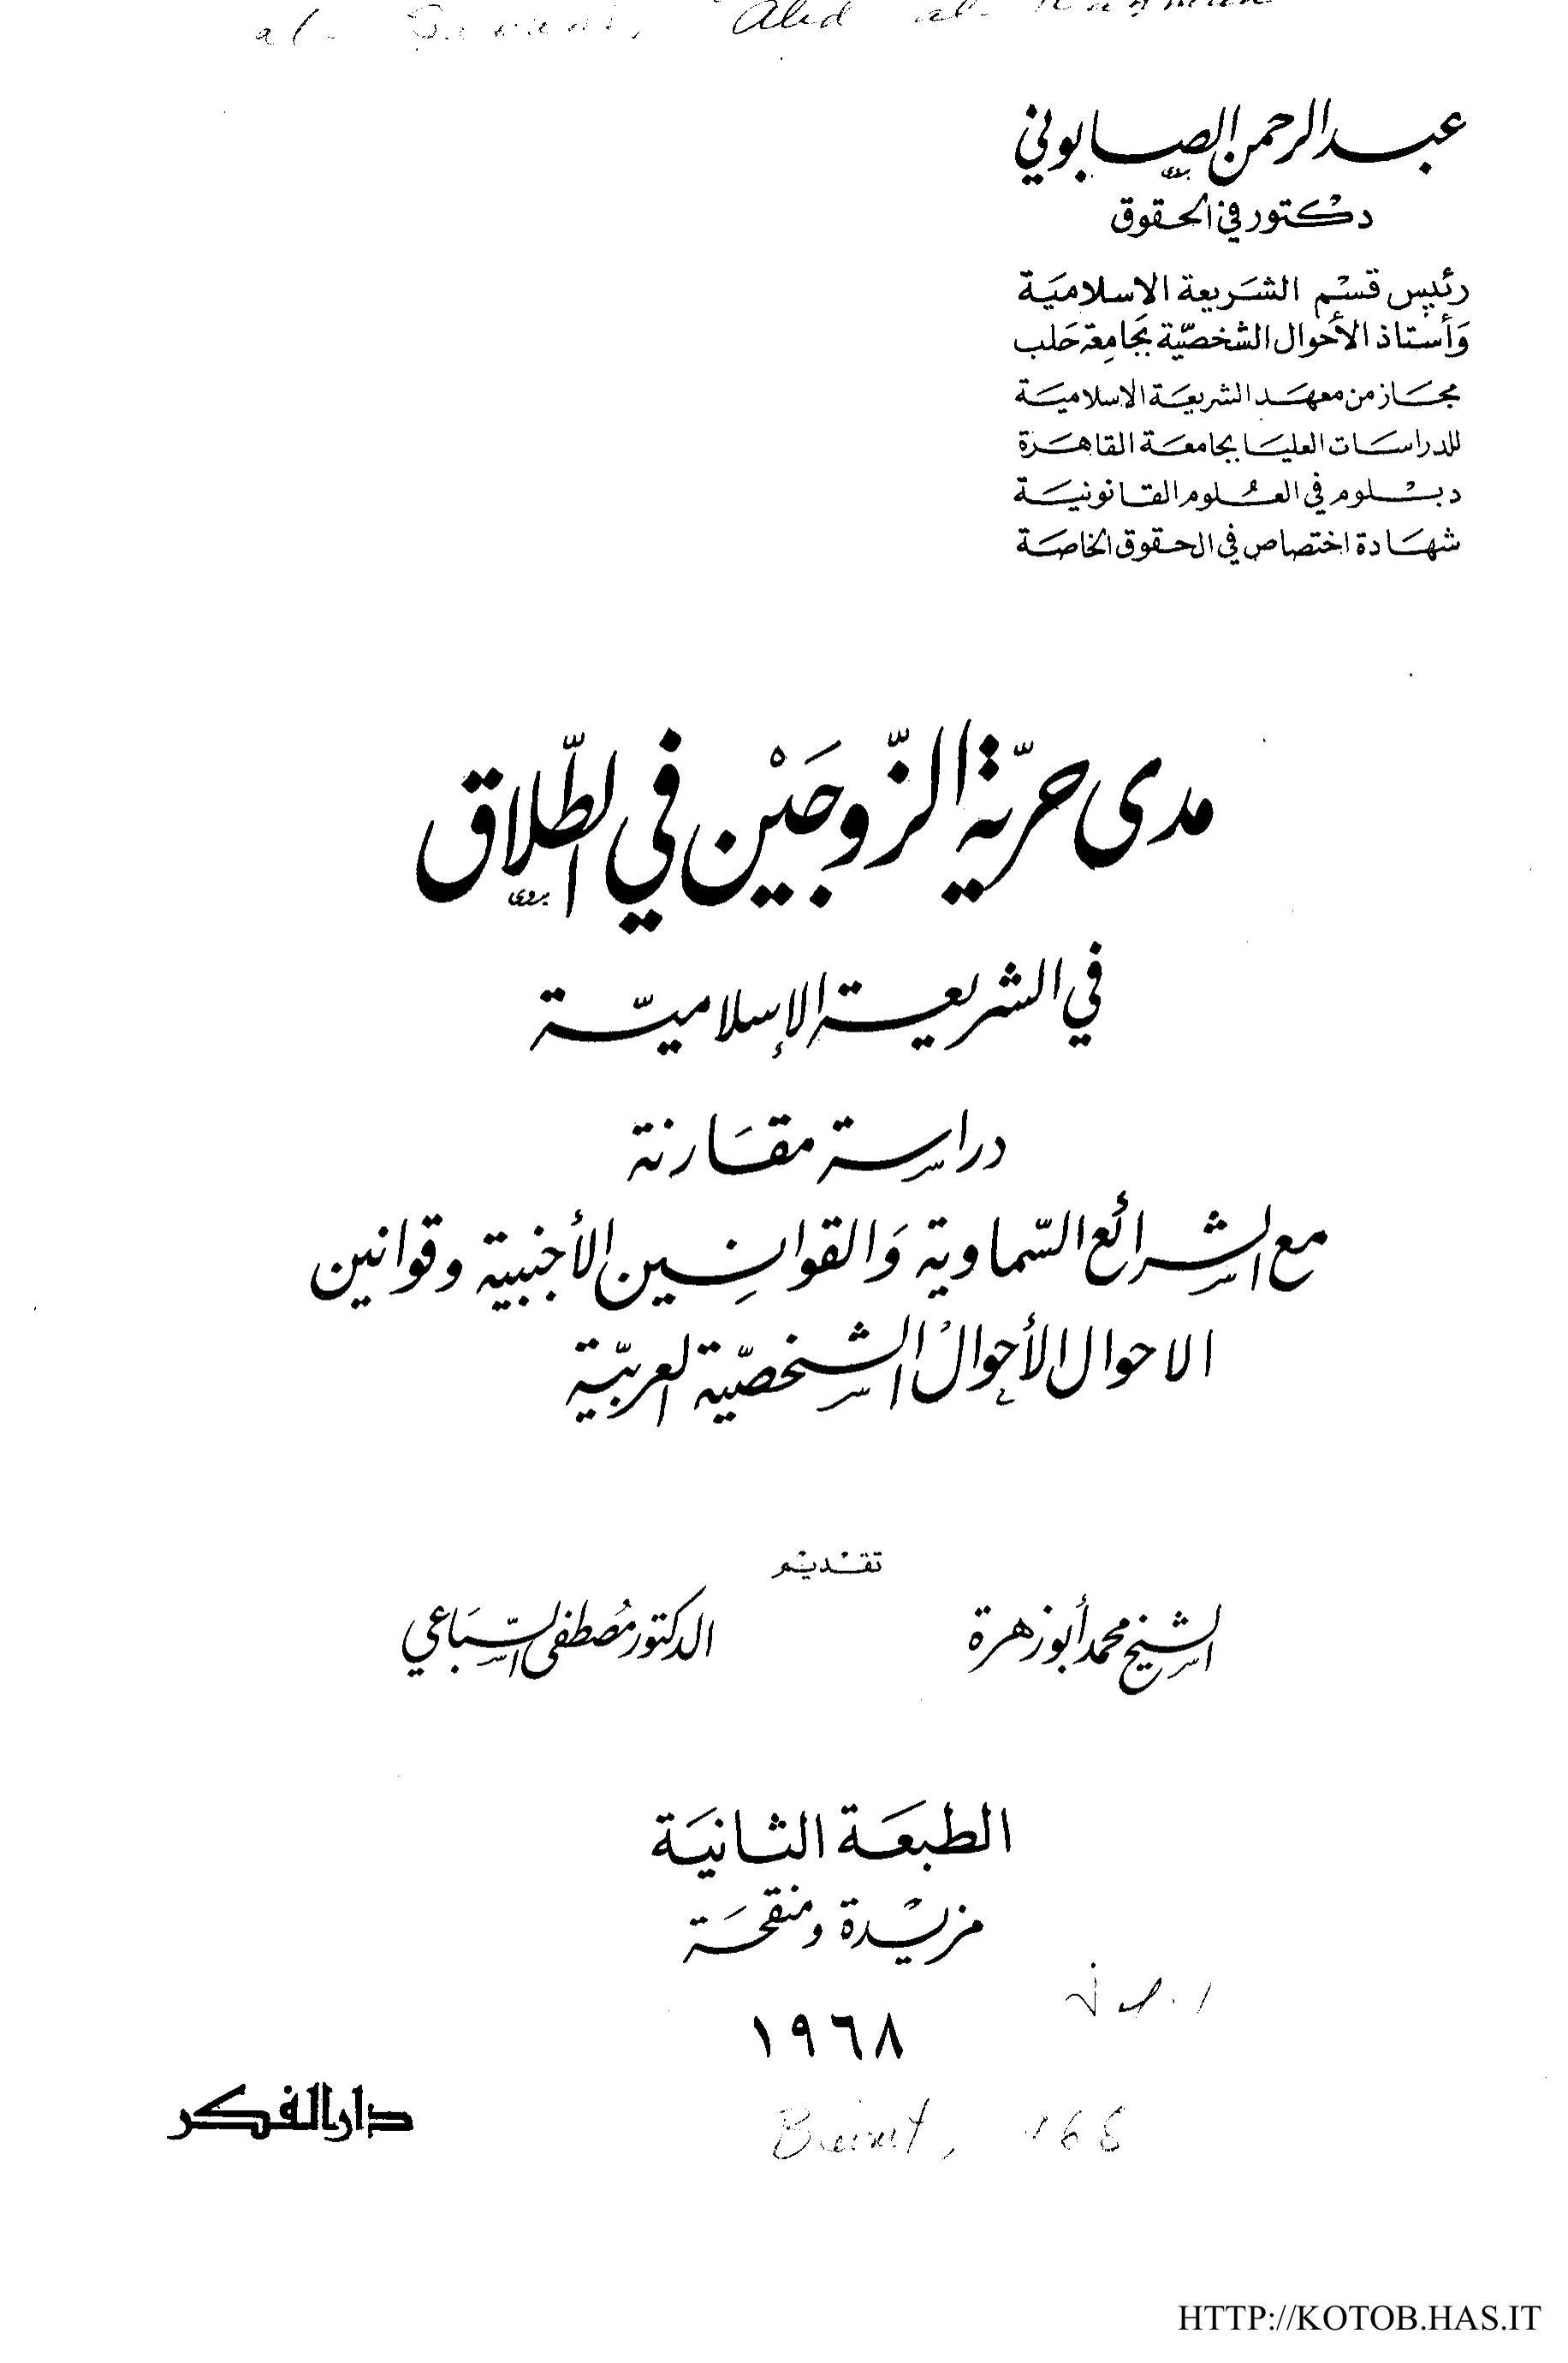 عبد الرحمن الصابوني
دكتور في الحقوق
رئيس قسم الشريعة الاسلامية
وأستاذ الأحوال الشخصيّة بجامعة حلب
مجاز من معهد الشريعة الاسلامية
للدراسات العليا بجامعة القاهرة
دبلوم في العلوم القانونية
شهادة اختصاص في الحقوق الخاصة
مدى حريّة الزّوجَيْن في الطّلاق
في الشريعة الإسلاميّة
دراسة مقارنة
مع الشرائع السّماوية وَالقوانين الأجنبية وقوانين
الاحوال الأحوال الشخصيّة العربيّة
تقديم
الشيخ محمد أبو زهرة
الدكتور مُصطفى السّباعي
الطبعَة الثانيَة
مزيدة ومنقحَة
١٩٦٨
دار الفكر
Beirut,
HTTP://KOTOB.HAS.IT